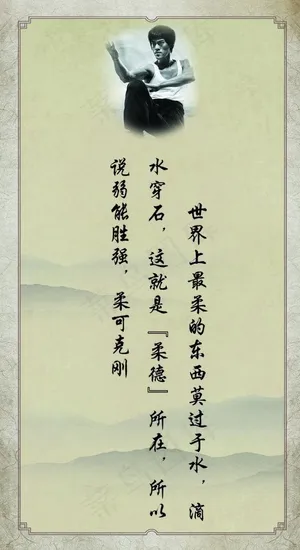 世界上最柔的东西莫过于水，滴
水穿石，这就是『柔德』所在，所以
说弱能胜强，柔可克刚